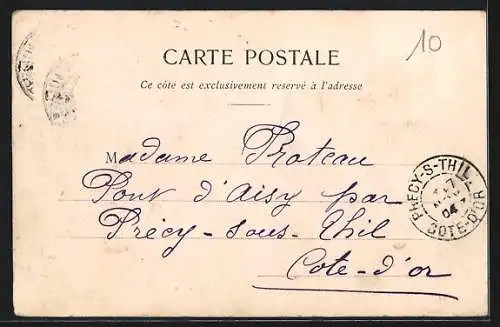 10
CARTE POSTALE
Ce côté est exclusivement reservé à l'adresse
Madame Proteau
Pont d'Aisy par
Précy-sous-Thil
Cote-d'or
PRÉCY-S-THIL
04
COTE-D'OR